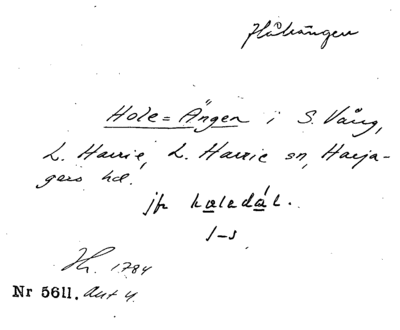 Hålsängen
Hole=Ängen i S. Vång,
L. Harrie, L. Harrie sn, Harja-
gers hd.
jfr holadál.
1784
Nr 5611. Akt 4.